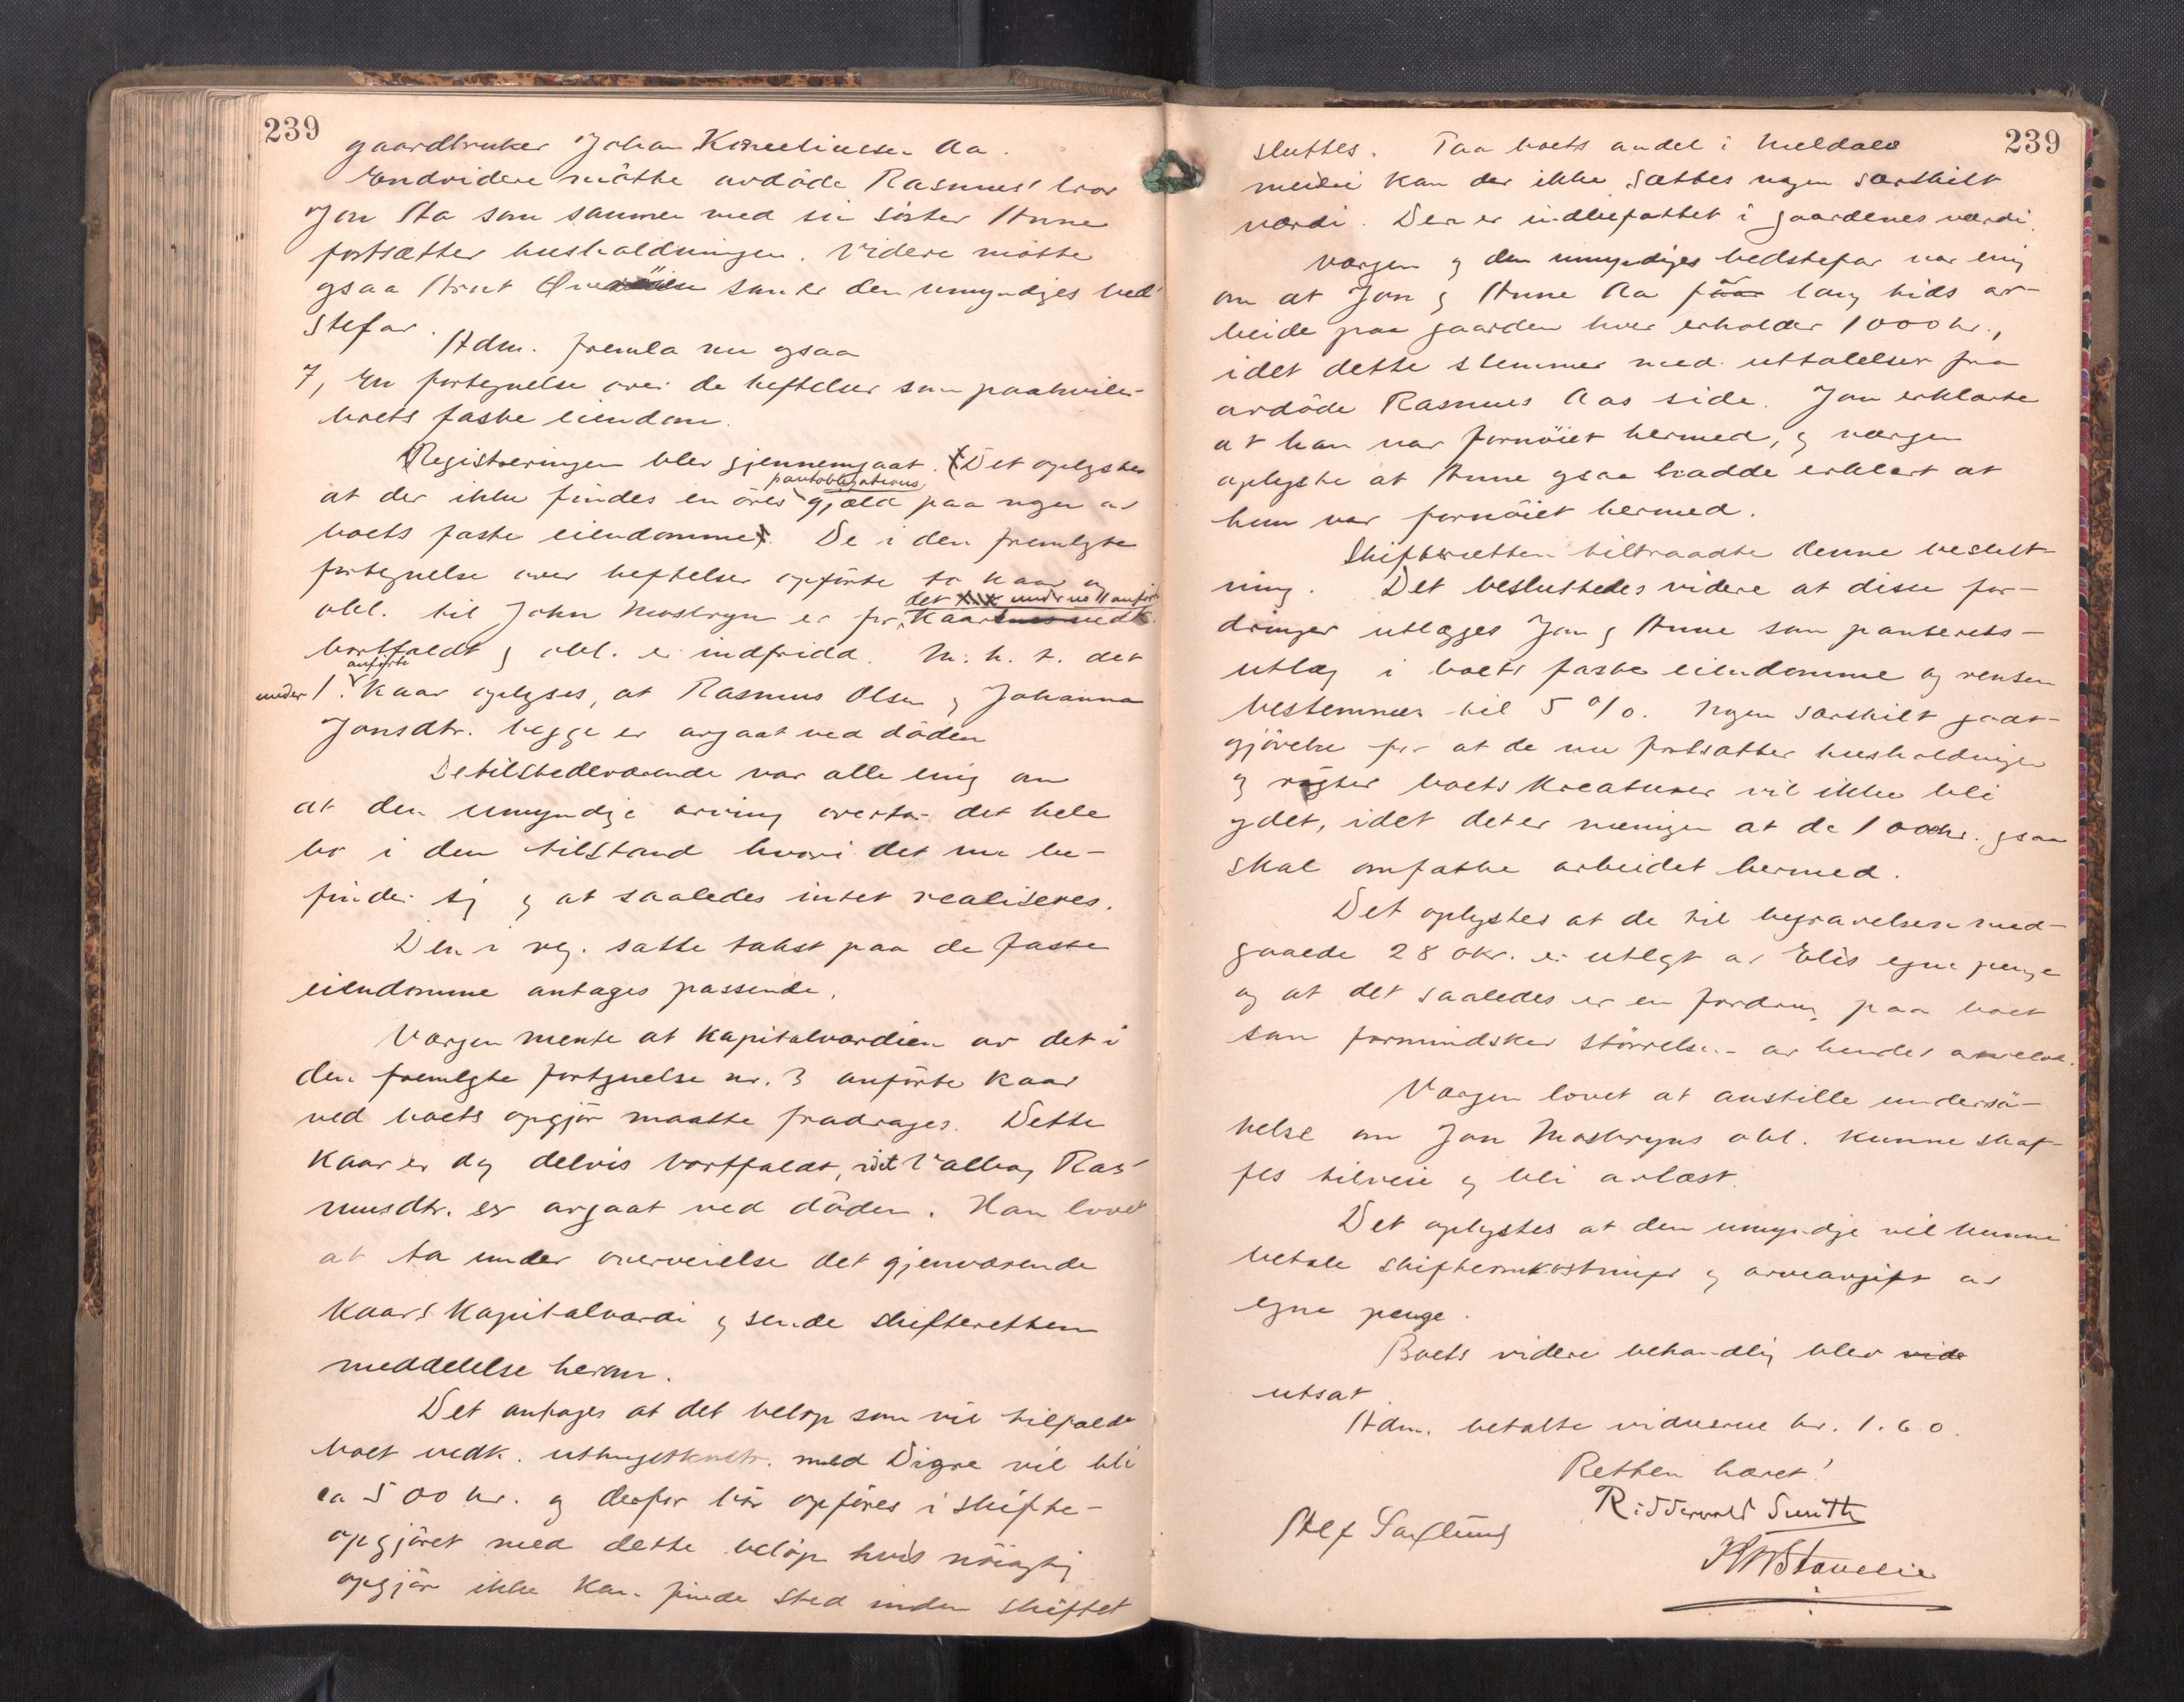 239
gaardbruker Johan Korneliussen Aa.
Endvidere mötte avdöde Rasmus' bror
Jon Aa som sammen med sin söster Anne
fortsætter husholdningen. Videre mötte
ogsaa Arnt som er den umyndiges bed-
stefar.
Adm. fremla nu ogsaa
7, En fortegnelse over de heftelser som paahviler
boets faste eiendom.
Registreringen blev gjennemgaat. Det oplystes
pantobligations
at der ikke findes en öres gjæld paa nogen av
boets faste eiendomme. De i den fremlagte
fortegnelse over heftelser opförte to kaar og
det under no 11 anför
obl. til John Mosbryn er for kaarenes vedk.
bortfaldt og obl. er indfridd. M. h. t. det
anförte
under 1. kaar oplyses, at Rasmus Olsen og Johanna
Jonsdtr. begge er avgaat ved döden
De tilstedeværende var alle enig om
at den umyndige arving overtar det hele
bo i den tilstand hvori det nu be-
finder sig og at saaledes intet realiseres.
Den i reg. satte takst paa de faste
eiendomme antages passende.
Værgen mente at kapitalværdien av det i
den fremlagte fortegnelse nr. 3 anförte kaar
ved boets opgjör maatte fradrages. Dette
kaar er dog delvis bortfaldt, idet Valborg Ras-
musdtr. er avgaat ved döden. Han lovet
at ta under overveielse det gjenværende
kaars kapitalværdi og sende skifteretten
meddelelse herom.
Det antages at det belöp som vil tilfalde
boet vedk. uthugstkontr. med Digre vil bli
ca 500 kr. og derfor bör opföres i skifte-
opgjöret med dette belöp hvis nöiagtig
opgjör ikke kan finde sted inden skiftet
239
sluttes. Paa boets andel i Meldals
meieri kan der ikke sættes nogen særskilt
værdi. Den er indbefattet i gaardenes værdi.
Værgen og den umyndiges bedstefar var enig
om at Jon og Anne Aa for lang tids ar-
beide paa gaarden hver erholder 1000 kr.,
idet dette stemmer med uttalelser fra
avdöde Rasmus Aas side. Jon erklærte
at han var fornöiet hermed, og værgen
oplyste at Anne ogsaa hadde erklært at
hun var fornöiet hermed.
Skifteretten tiltraadte denne beslut-
ning. Det besluttedes videre at disse for-
dringer utlægges Jon og Anne som panterets-
utlæg i boets faste eiendomme og renten
bestemmes til 5 %. Nogen særskilt godt-
gjörelse for at de nu fortsætter husholdningen
og rögter boets kreaturer vil ikke bli
ydet, idet det er meningen at de 1000 kr. ogsaa
skal omfatte arbeidet hermed.
Det oplystes at de til begravelsen med-
gaaede 280 kr. er utlagt av Elis egne penge
og at det saaledes er en fordring paa boet
som formindsker störrelsen av hendes arvelod.
Værgen lovet at anstille undersö-
kelse om Jon Mosbryns obl. kunne skaf-
fes tilveie og bli avlæst.
Det oplystes at den umyndige vil kunne
betale skifteomkostninger og arveavgift av
egne penge.
Boets videre behandling blev vide
utsat
Adm. betalte vidnerne kr. 1.60.
Retten hævet!
Ridderwold Smith
Alf